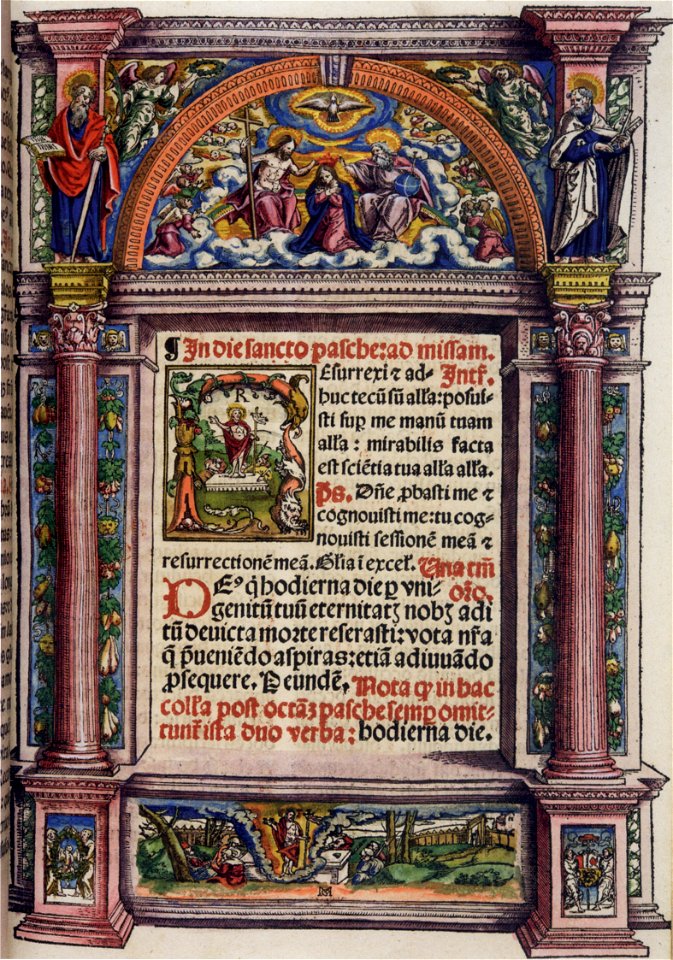 ¶ In die sancto pasche: ad missam.
R
Esurrexi ⁊ ad- Introͥ.
huc tecū sū alła: posui-
sti suꝑ me manū tuam
alła: mirabilis facta
est sciētia tua alła alła.
p̄s. Dn̄e ꝓbasti me ⁊
cognouisti me: tu cog-
nouisti sessionē meā ⁊
resurrectionē meā. Gl̄ia ī excel. Una tm̄
DEꝰ q̇ hodierna die ꝑ vni- oro.
genitū tuū eternitatꝫ nobꝫ adi
tū deuicta morte reserasti: vota nr̄a
q̄ p̄ueniēdo aspiras: etiā adiuuādo
ꝓsequere. Peundē. Nota ꝙ in hac
coll̄a post octaꝫ pasche semꝑ omit-
tunt̃ ista duo verba: hodierna die.